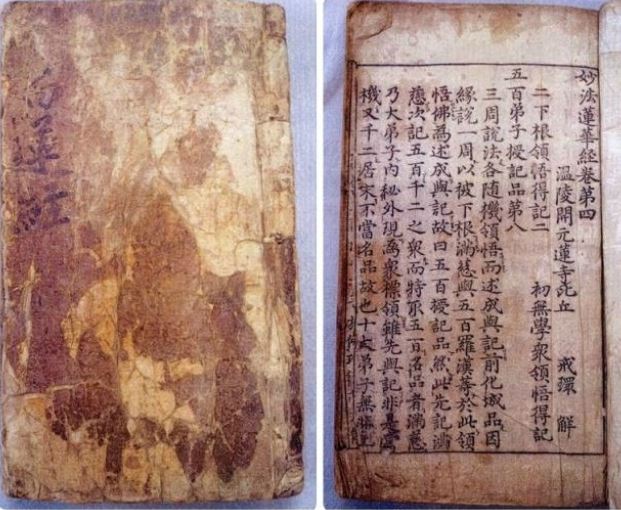 蓮經
妙法蓮華經卷第四
温陵開元蓮寺比丘 戒環 解
二下根領悟得記二 初無學衆領悟得記
五百弟子授記品第八
三周說法各随機領悟而述成與記前化城品因
緣說一周以被下根滿慈與五百羅漢等於此領
悟佛為述成與記故曰五百授記品然此先記滿
慈次記五百千二之衆而特取五百名品者滿慈
乃大弟子內秘外現為衆標領雖先與記非是當
機又千二居末不當名品故也十大弟子無非